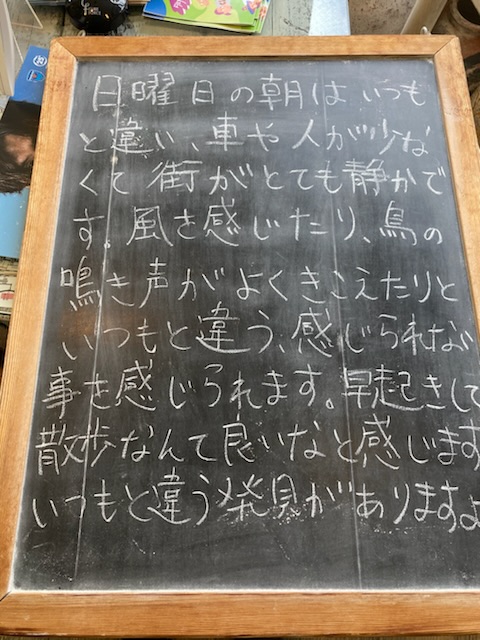 日曜日の朝は いつも
と違い、車や人が少な
くて 街がとても静かで
す。風を感じたり、鳥の
鳴き声がよくきこえたりと
いつもと違う、感じられない
事を感じられます。早起きして
散歩なんて良いなと感じます
いつもと違う発見がありますよ